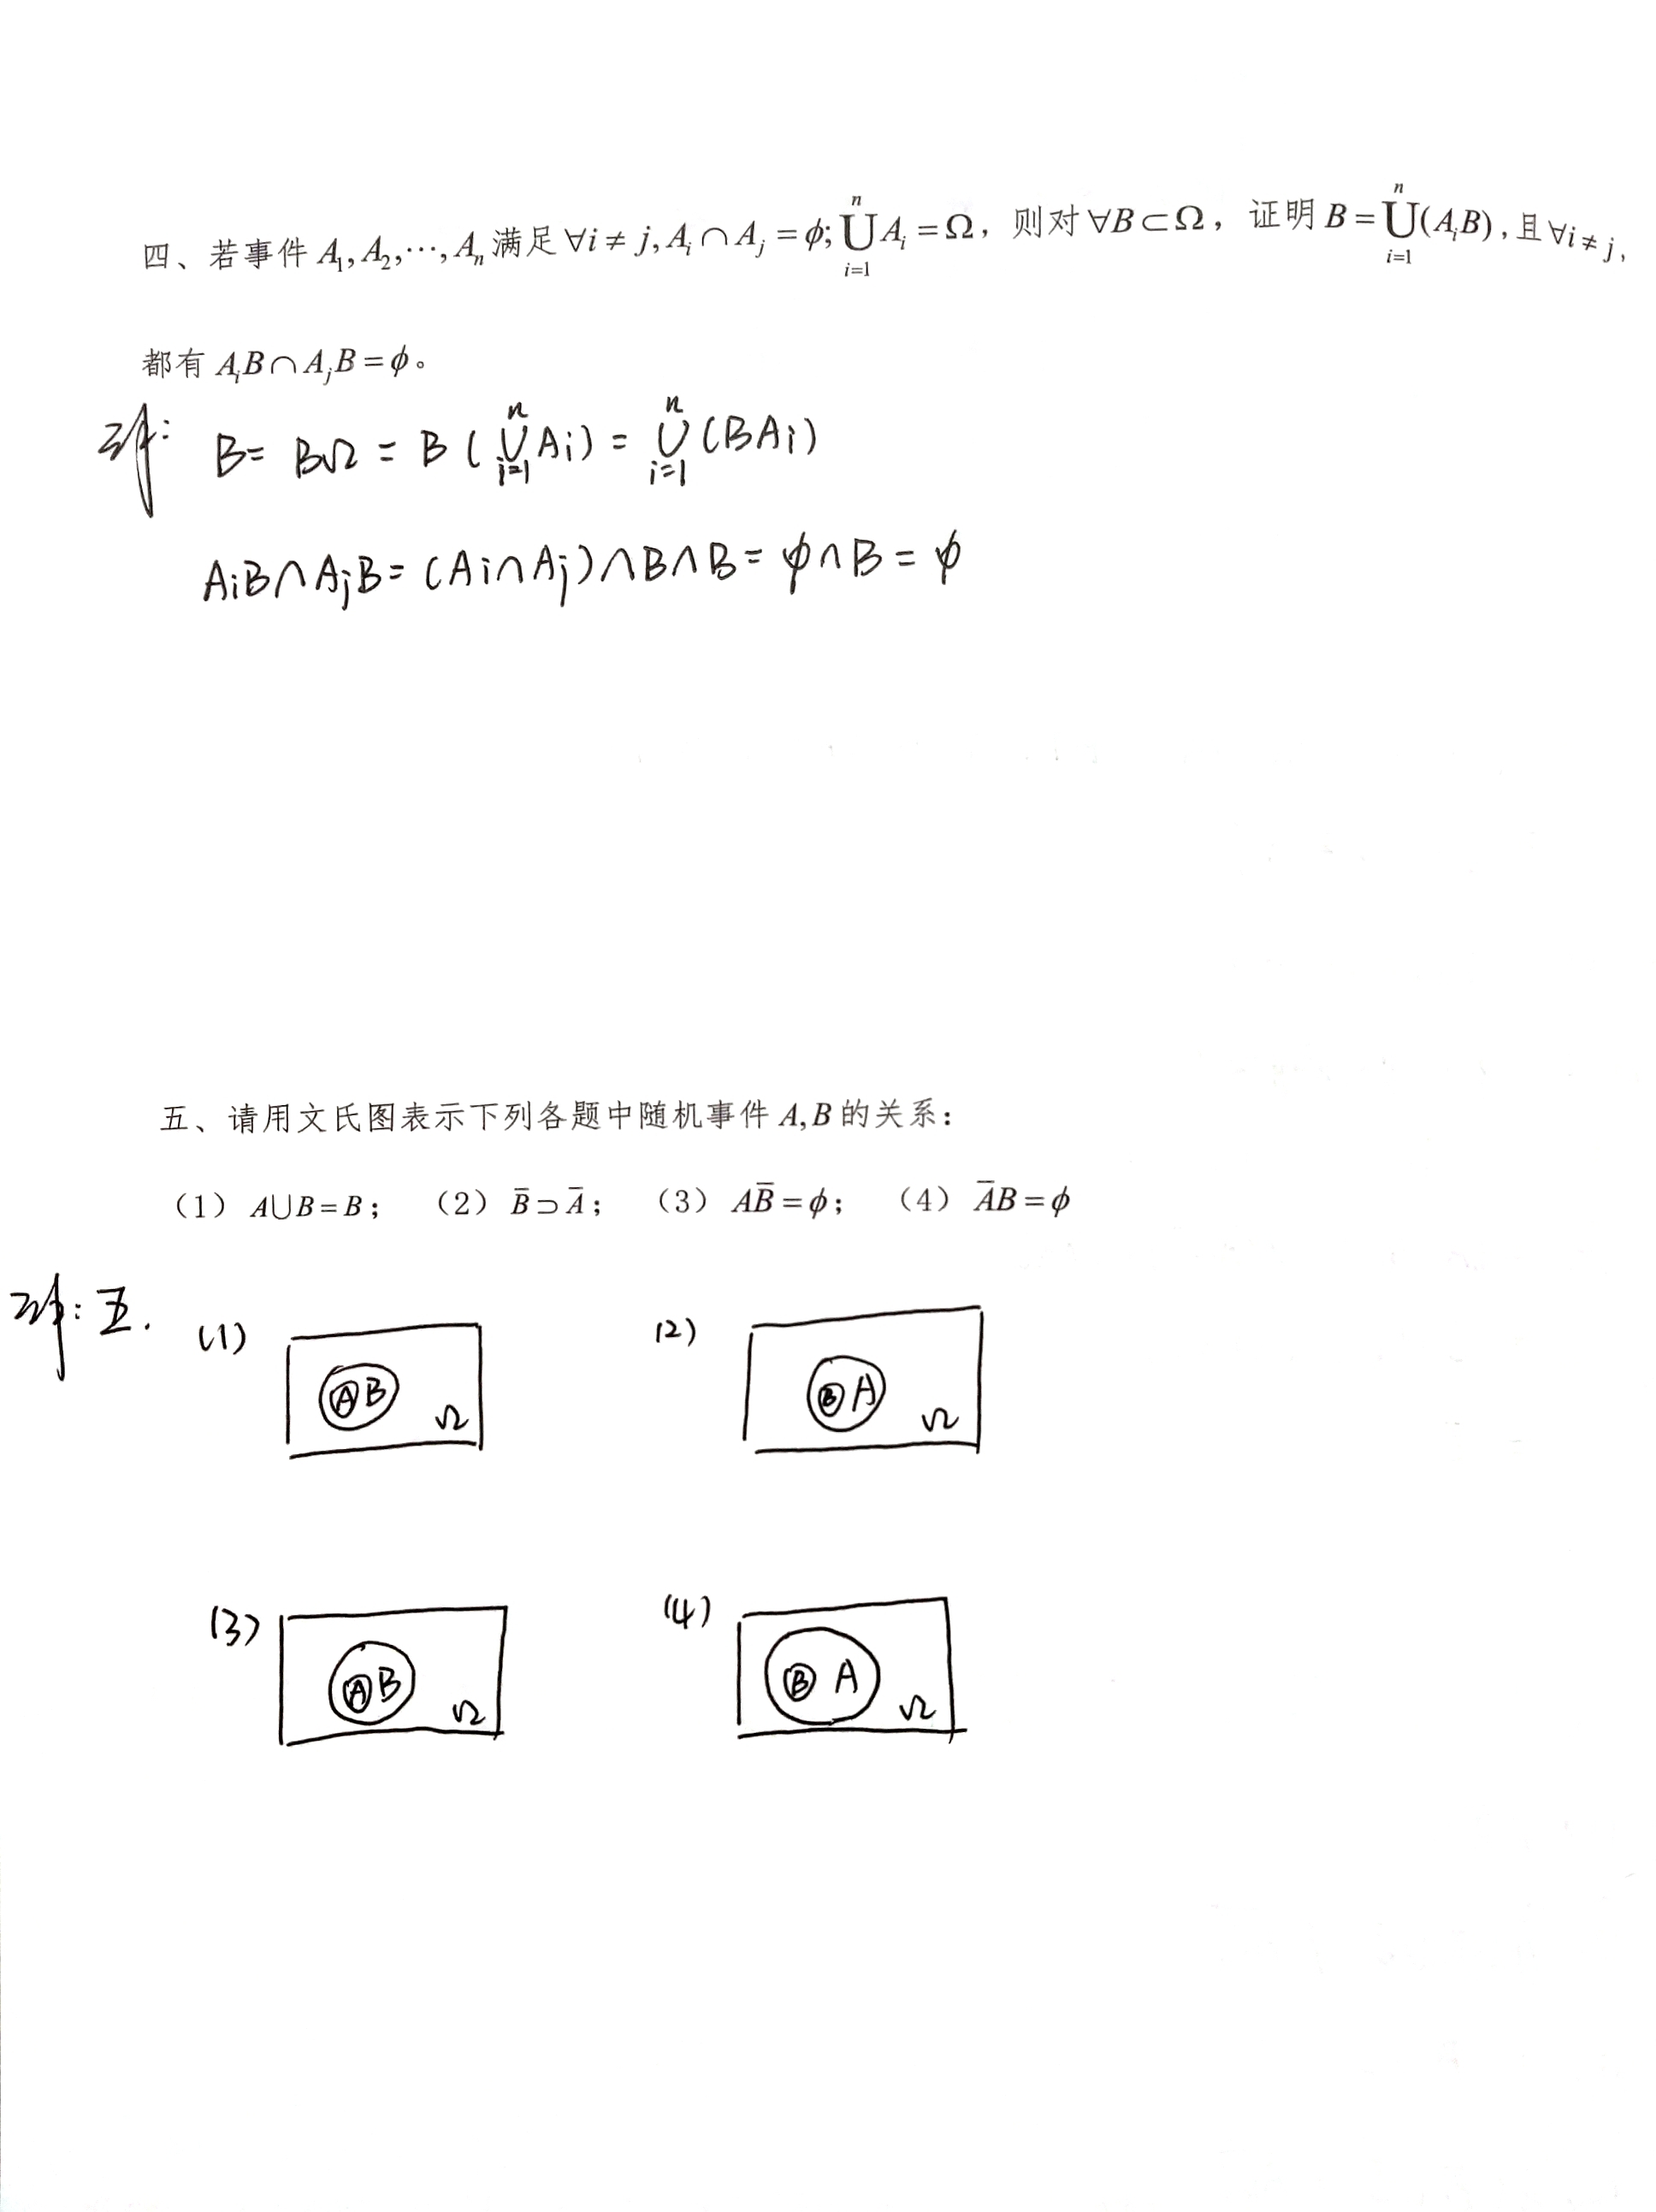 四、若事件 A₁, A₂, ⋯, Aₙ 满足 ∀i ≠ j, Aᵢ ∩ Aⱼ = ϕ; ⋃ᵢ₌₁ⁿ Aᵢ = Ω，则对 ∀B ⊂ Ω，证明 B = ⋃ᵢ₌₁ⁿ (AᵢB)，且 ∀i ≠ j，
都有 AᵢB ∩ AⱼB = ϕ。
B = BΩ = B(⋃ᵢ₌₁ⁿ Aᵢ) = ⋃ᵢ₌₁ⁿ (BAᵢ)
AᵢB ∩ AⱼB = (Aᵢ ∩ Aⱼ) ∩ B ∩ B = ϕ ∩ B = ϕ
五、请用文氏图表示下列各题中随机事件 A, B 的关系：
（1） A∪B = B； （2） B̅ ⊃ A̅； （3） AB̅ = ϕ； （4） A̅B = ϕ
五.
(1) A B Ω
(2) B A Ω
(3) A B Ω
(4) B A Ω